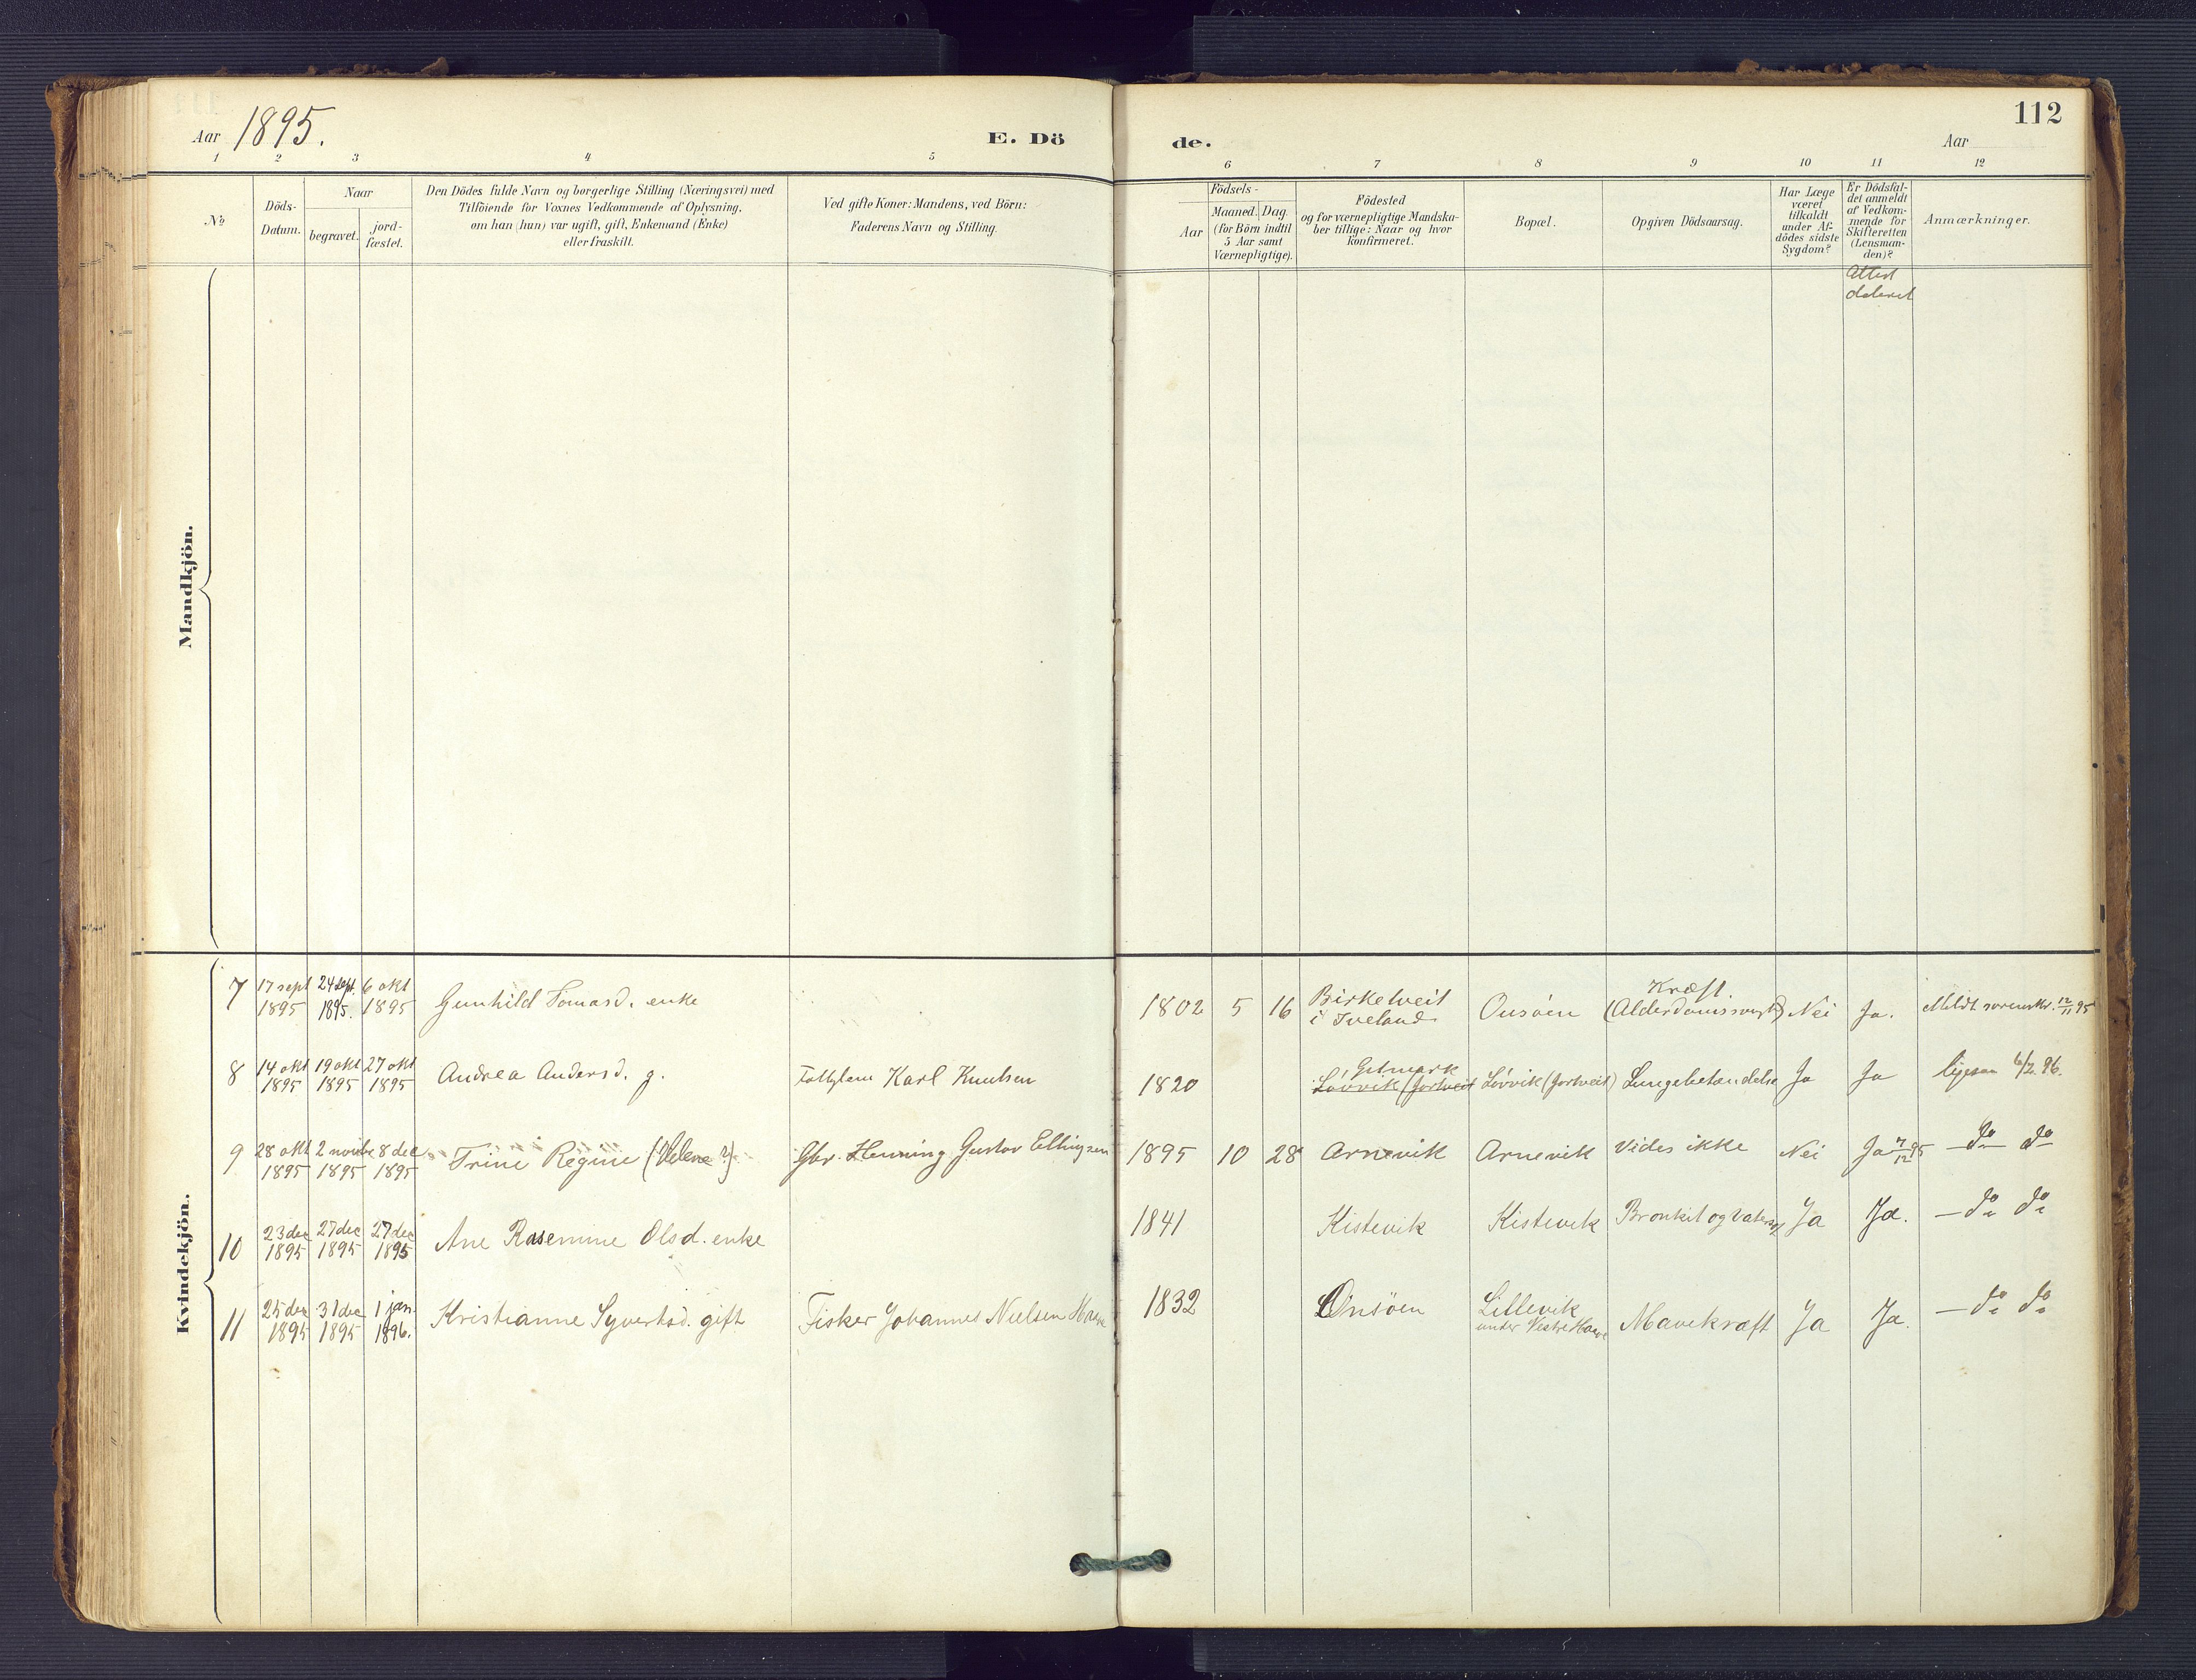 112
Aar 1895.
E. Dö
de.
Aar
1 2 3 4 5 6 7 8 9 10 11 12
No
Döds-
Datum.
Naar
begravet.
jord-
fæstet.
Den Dödes fulde Navn og borgerlige Stilling (Næringsvei) med
Tilföiende for Voxnes Vedkommende af Oplysning,
om han (hun) var ugift, gift, Enkemand (Enke)
eller fraskilt.
Ved gifte Koner: Mandens, ved Börn:
Faderens Navn og Stilling.
Födsels-
Aar
Maaned. Dag.
(for Börn indtil
5 Aar samt
Værnepligtige).
Födested
og for værnepligtige Mandska-
ber tillige: Naar og hvor
konfirmeret.
Bopæl.
Opgiven Dödsaarsag.
Har Læge
været
tilkaldt
under Af-
dödes sidste
Sygdom?
Er Dödsfal-
det anmeldt
af Vedkom-
mende for
Skifteretten
(Lensman-
den)?
Anmærkninger.
Attest
Mandkjön.
Kvindekjön.
7 17 sept 1895 24 sept. 1895. 6 okt 1895 Gunhild Tomasd. enke 1802 5 16 Birketveit i Iveland Onsöen Kræft (Alderdomssvagh) Nei Ja. Meldt sorenskr. 12/11 95
8 14 okt 1895 19 okt 1895 27 okt 1895 Andrea Andersd. g. Karl Knutsen 1820 Getmark Lövvik (Jortveit Lövvik (Jortveit) Lungebetændelse Ja Ja 6/2 96.
9 28 okt 1895 2 novbr 1895 8 dec 1895 Trine Regine (Helene?) Gbr. Henning Gustav Ellingsen 1895 10 28 Arnevik Arnevik Vides ikke Nei Ja 7/12 95 — do do
10 23 dec 1895 27 dec 1895 27 dec 1895 Ane Rasemine Olsd. enke 1841 Kistevik Kistevik Bronkit og Ja Ja. — do do
11 25 dec 1895 31 dec 1895 1 jan. 1896. Kristianne Syvertsd. gift Fisker Johannes Nielsen 1832 Onsöen Lillevik under Vestre Mavekræft Ja Ja. — do do